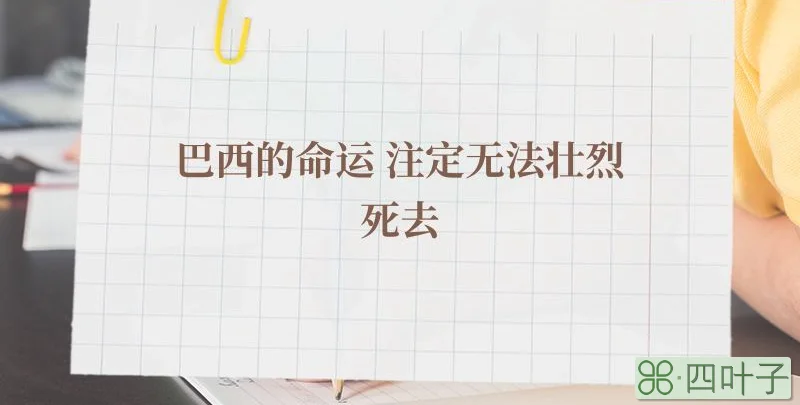 巴西的命运 注定无法壮烈
死去
四叶子